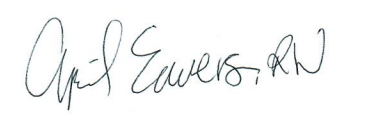 April Eavers, RN